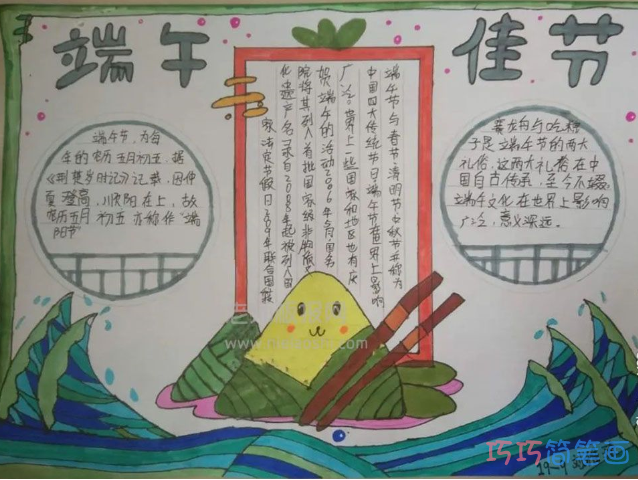 端午
佳节
端午节,为每
年的农历五月初五,据
《荆楚岁时记》记载,因仲
夏登高,顺阳在上,故
农历五月初五亦称作"端
阳节"
端午节与春节、清明节、中秋节并称为
中国四大传统节日。端午节在世界上影响
广泛。世界上一些国家和地区也有庆
贺端午的活动。2006年5月国务
院将其列入首批国家级非物质文
化遗产名录。自2008年起被列入国
家法定节假日。2009年联合国教
赛龙舟与吃粽
子是端午节的两大
礼俗,这两大礼俗在中
国自古传承,至今不辍。
端午文化在世界上影响
广泛,意义深远。
巧巧简笔画